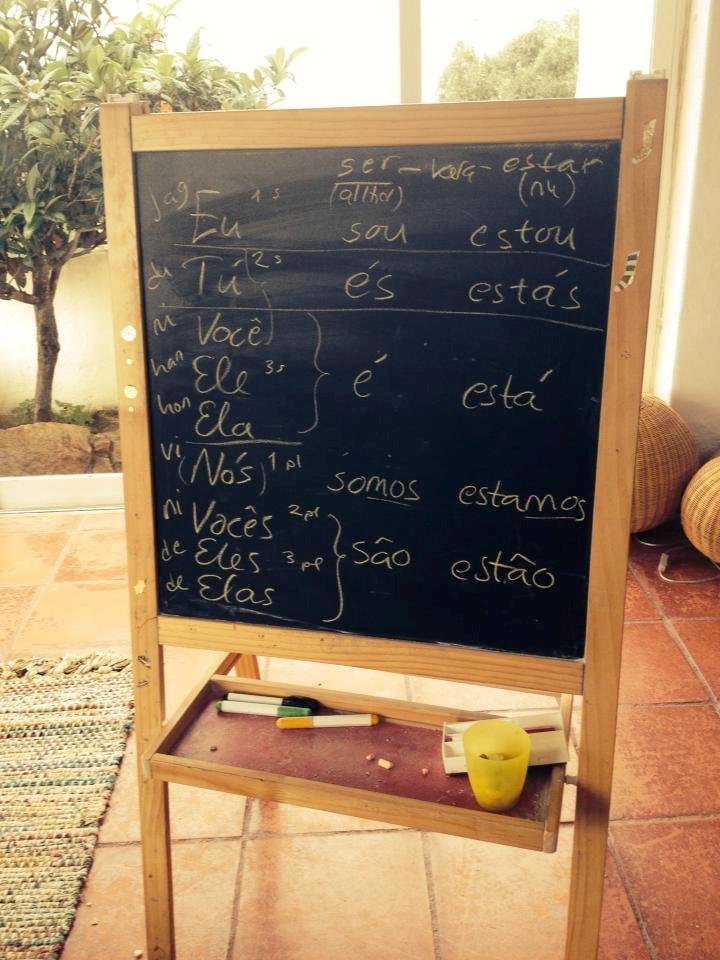 ser - vara - estar
(alltid) (nu)
jag Eu 1s sou estou
du Tú 2s és estás
ni Você
han Ele 3s é está
hon Ela
vi (Nós) 1pl somos estamos
ni Vocês 2pl
de Eles 3pl são estão
de Elas